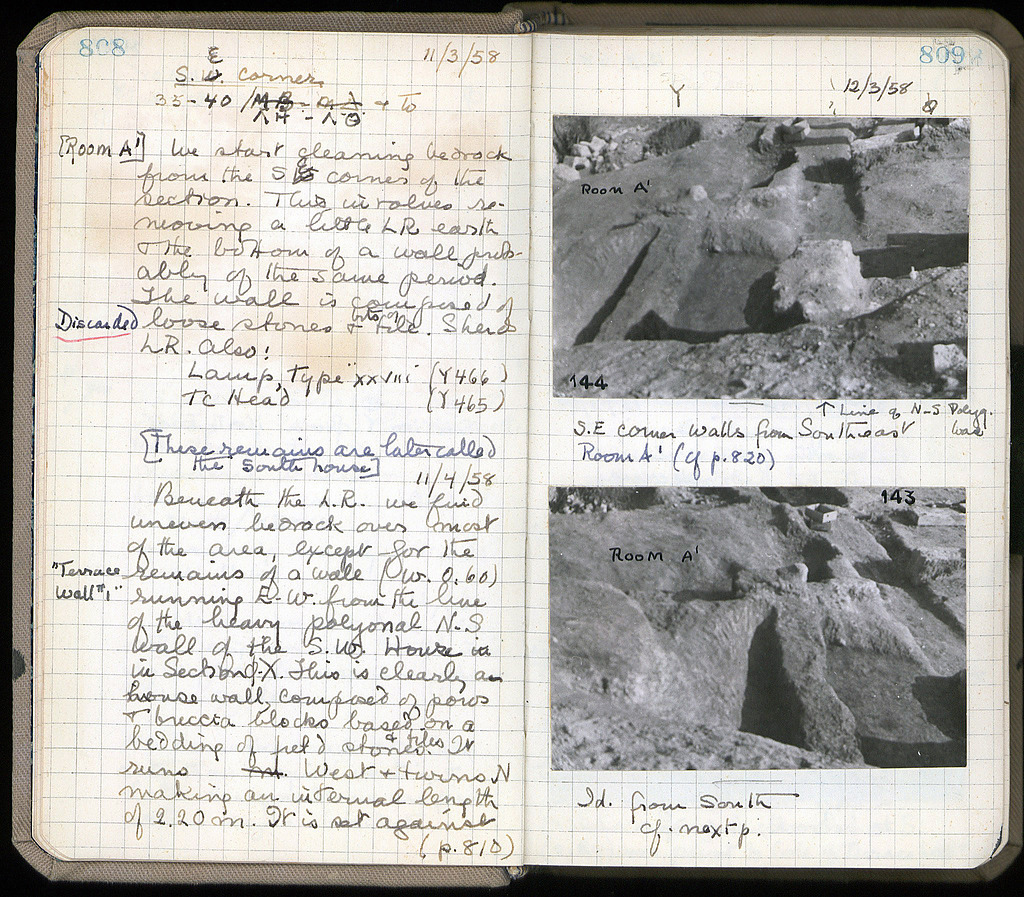 808
11/3/58
S.E. corner
35-40 / ΛΗ - ΛΘ
[Room A'] We start cleaning bedrock
from the SE corner of the
section. This involves re-
moving a little LR earth
& the bottom of a wall prob-
ably of the same period.
The wall is composed of
Discarded loose stones & bits of tile. Sherds
LR. Also:
Lamp, Type XXVIII (Y466)
TC Head (Y465)
[These remains are later called
the South house]
11/4/58
Beneath the L.R. we find
uneven bedrock over most
of the area, except for the
"Terrace Wall #1" remains of a wall (w. 0.60)
running E-W. from the line
of the heavy polygonal N-S
wall of the S.W. House in
in Section X. This is clearly a
house wall, composed of poros
& breccia blocks based on a
bedding of field stones & tiles. It
runs West & turns N
making an internal length
of 2.20 m. It is set against
(p.810)
809
Y
12/3/58
Room A'
144
↑ Line of N-S Polyg. wall
S.E corner walls from Southeast
Room A' (cf p.820)
143
Room A'
Id. from South
cf. next p.